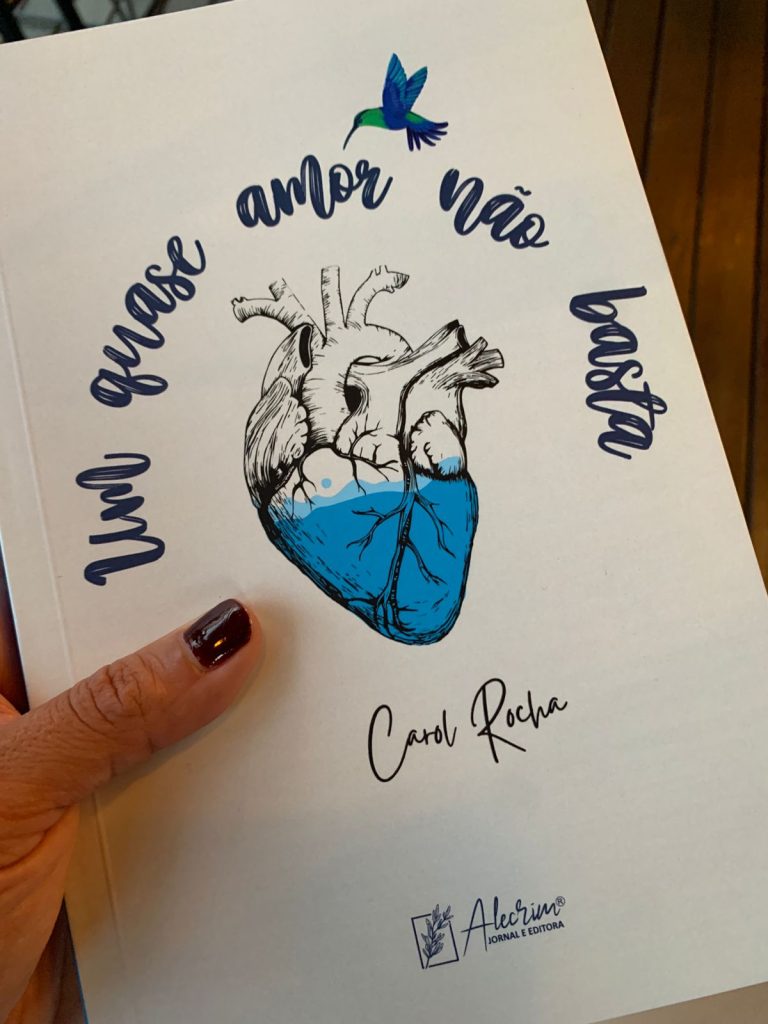 Um quase amor não basta
Carol Rocha
Alecrim®
JORNAL E EDITORA